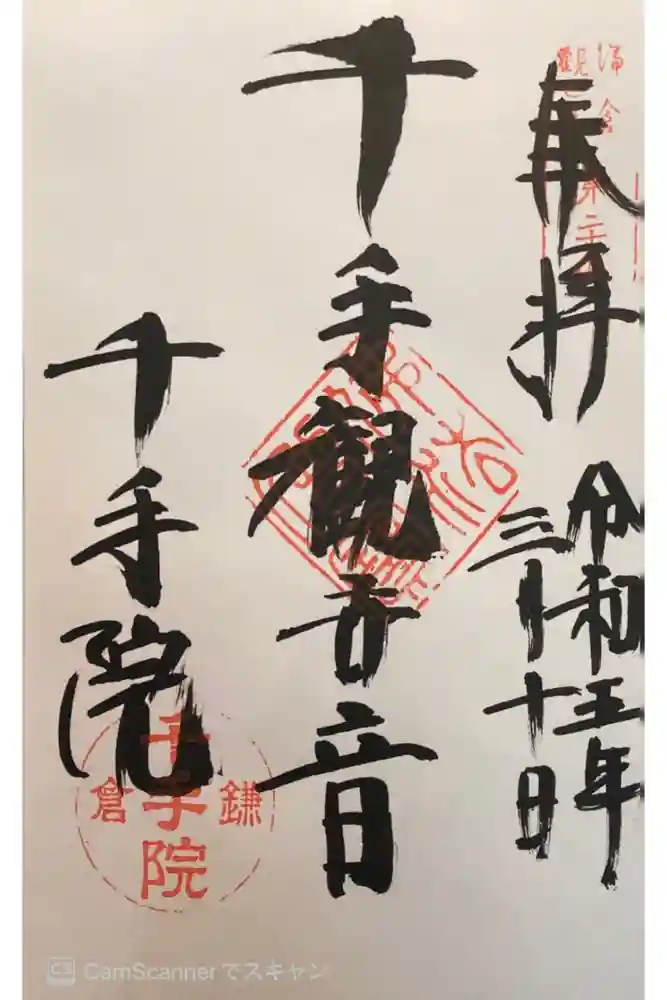 奉拝
令和五年
三月十日
千手観世音
千手院
鎌倉
千手院
CamScannerでスキャン